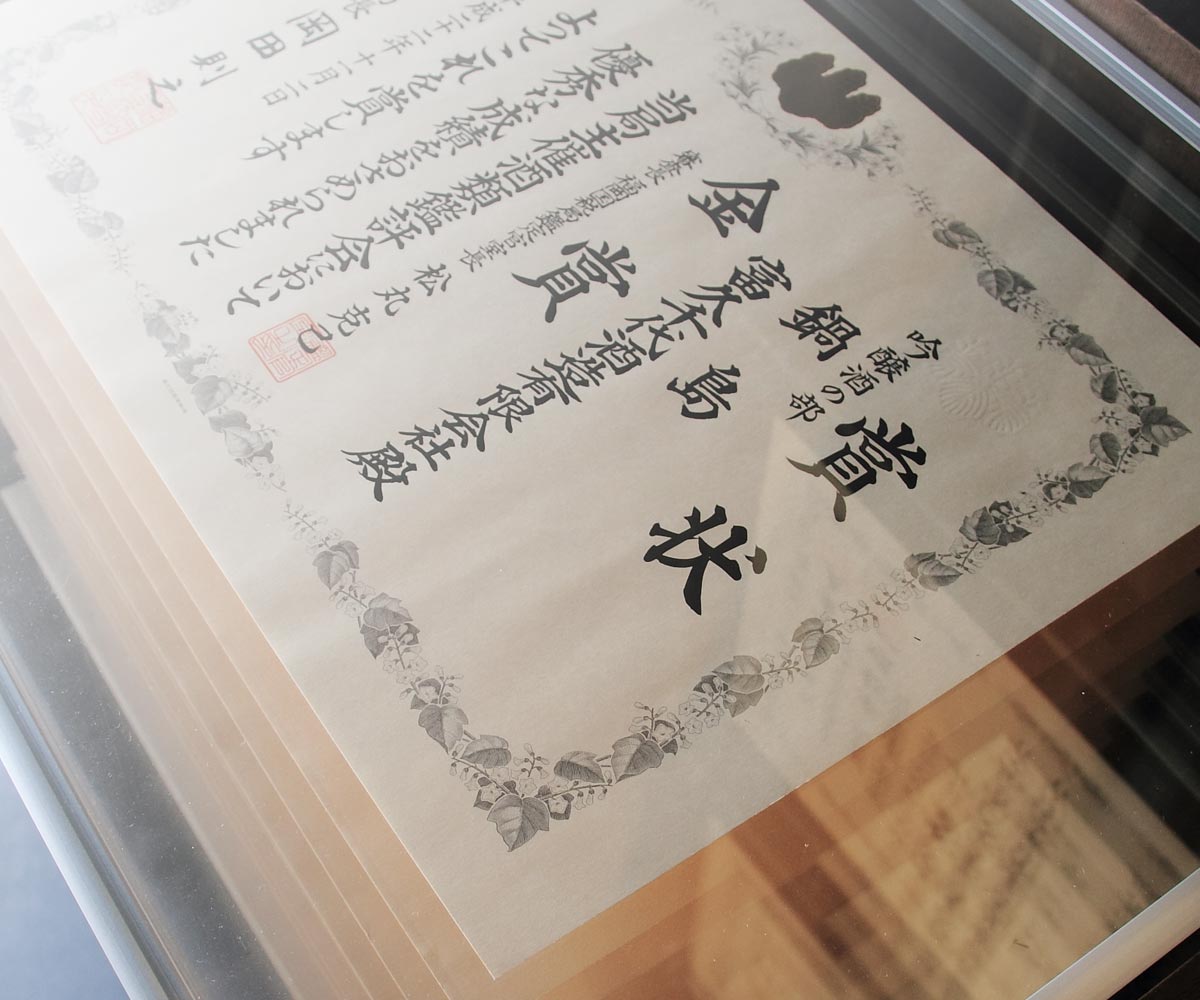 賞状
吟醸酒の部
鍋島
富久千代酒造有限会社 殿
金賞
審査長 福岡国税局鑑定官室長 松丸克己
当局主催酒類鑑評会において
優秀な成績をおさめられました
よってこれを賞します
成二十二年十一月二日
長 岡田則之